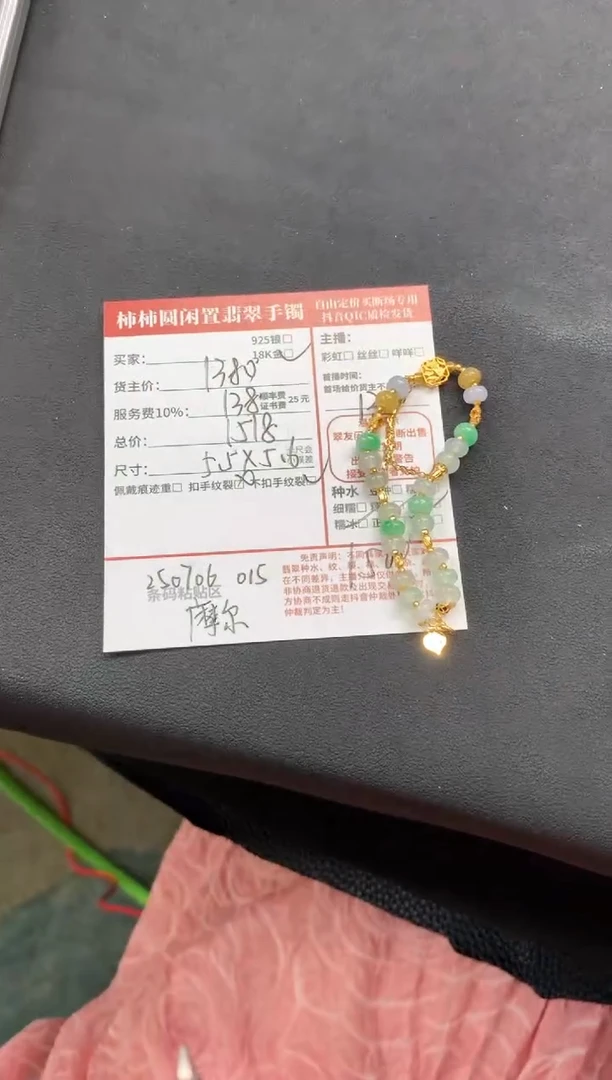 柿柿圆闲置翡翠手镯
自由定价买断场专用
抖音QIC质检发货
925银□
18K金□
买家：
货主价：1380
服务费10%：138 顺丰费 证书费 25元
总价：1518
尺寸：5.5×5.06
佩戴痕迹重□ 扣手纹裂□ 不扣手纹裂□
主播：
彩虹□ 丝丝□ 咩咩□
被播时间：
首场给价货主不
断出售
种水
细糯□
糯冰□ 正
250706 015
条码粘贴区
摩尔
免责声明：不同
翡翠种水、纹、
在不同差异，主播介绍仅
非协商退货退款及出现交易
方协商不成则走抖音仲裁
仲裁判定为主！